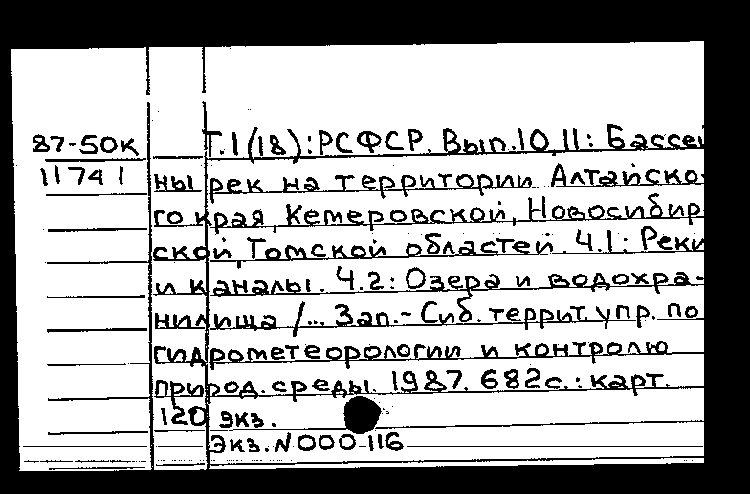 87-50К Т.1(18): РСФСР. Вып.10,11: Бассей
11741 ны рек на территории Алтайско-
го края, Кемеровской, Новосибир
ской, Томской областей. Ч.1: Реки
и каналы. Ч.2: Озера и водохра-
нилища /... Зап.- Сиб. террит. упр. по
гидрометеорологии и контролю
природ. среды. 1987. 682с.: карт.
120 экз.
Экз. N 000 116